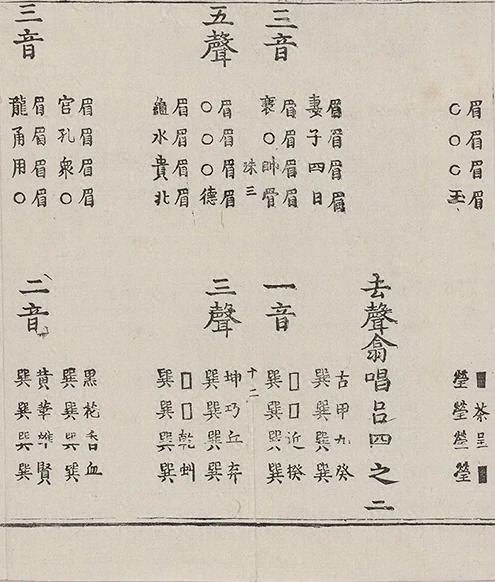 眉眉眉眉
○○○玉
三音
眉眉眉眉
妻子四日
眉眉眉眉
衰○帥骨
三
五聲
眉眉眉眉
○○○德
眉眉眉眉
龜水貴北
三音
眉眉眉眉
宮孔衆○
眉眉眉眉
龍甬用○
■茶呈■
瑩瑩瑩瑩
去聲翕唱呂四之二
一音
古甲九癸
巽巽巽巽
□□近揆
巽巽巽巽
十二
三聲
坤巧丘弃
巽巽巽巽
□□乾虯
巽巽巽巽
二音
黑花香血
巽巽巽巽
黄華雄賢
巽巽巽巽